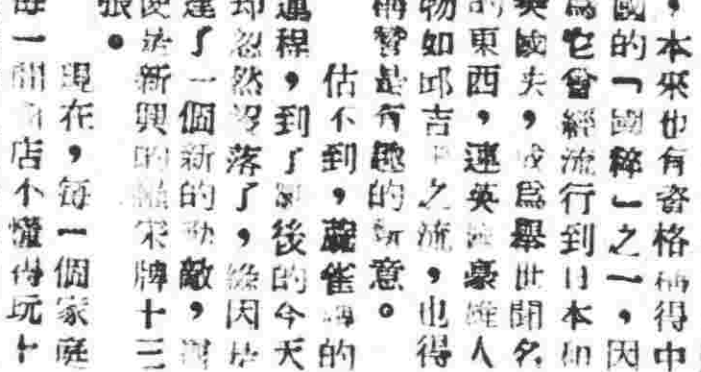 ，本來也有資格稱得中
國的「國粹」之一，因
爲它曾經流行到日本和
英國去，成爲舉世聞名
的東西，連英 豪 人
物如邱吉 之流，也得
稱贊是有趣的玩意。
估不到，蔴雀 的
運程，到了 後的今天
却忽然沒落了， 因
逢了一個新的勁敵，
便是新興的 宋牌十三
張。
現在，每一個家庭
每一間 店不懂得玩十